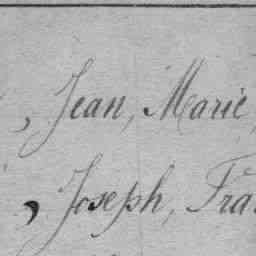 , Jean, Marie,
, Joseph, Fra